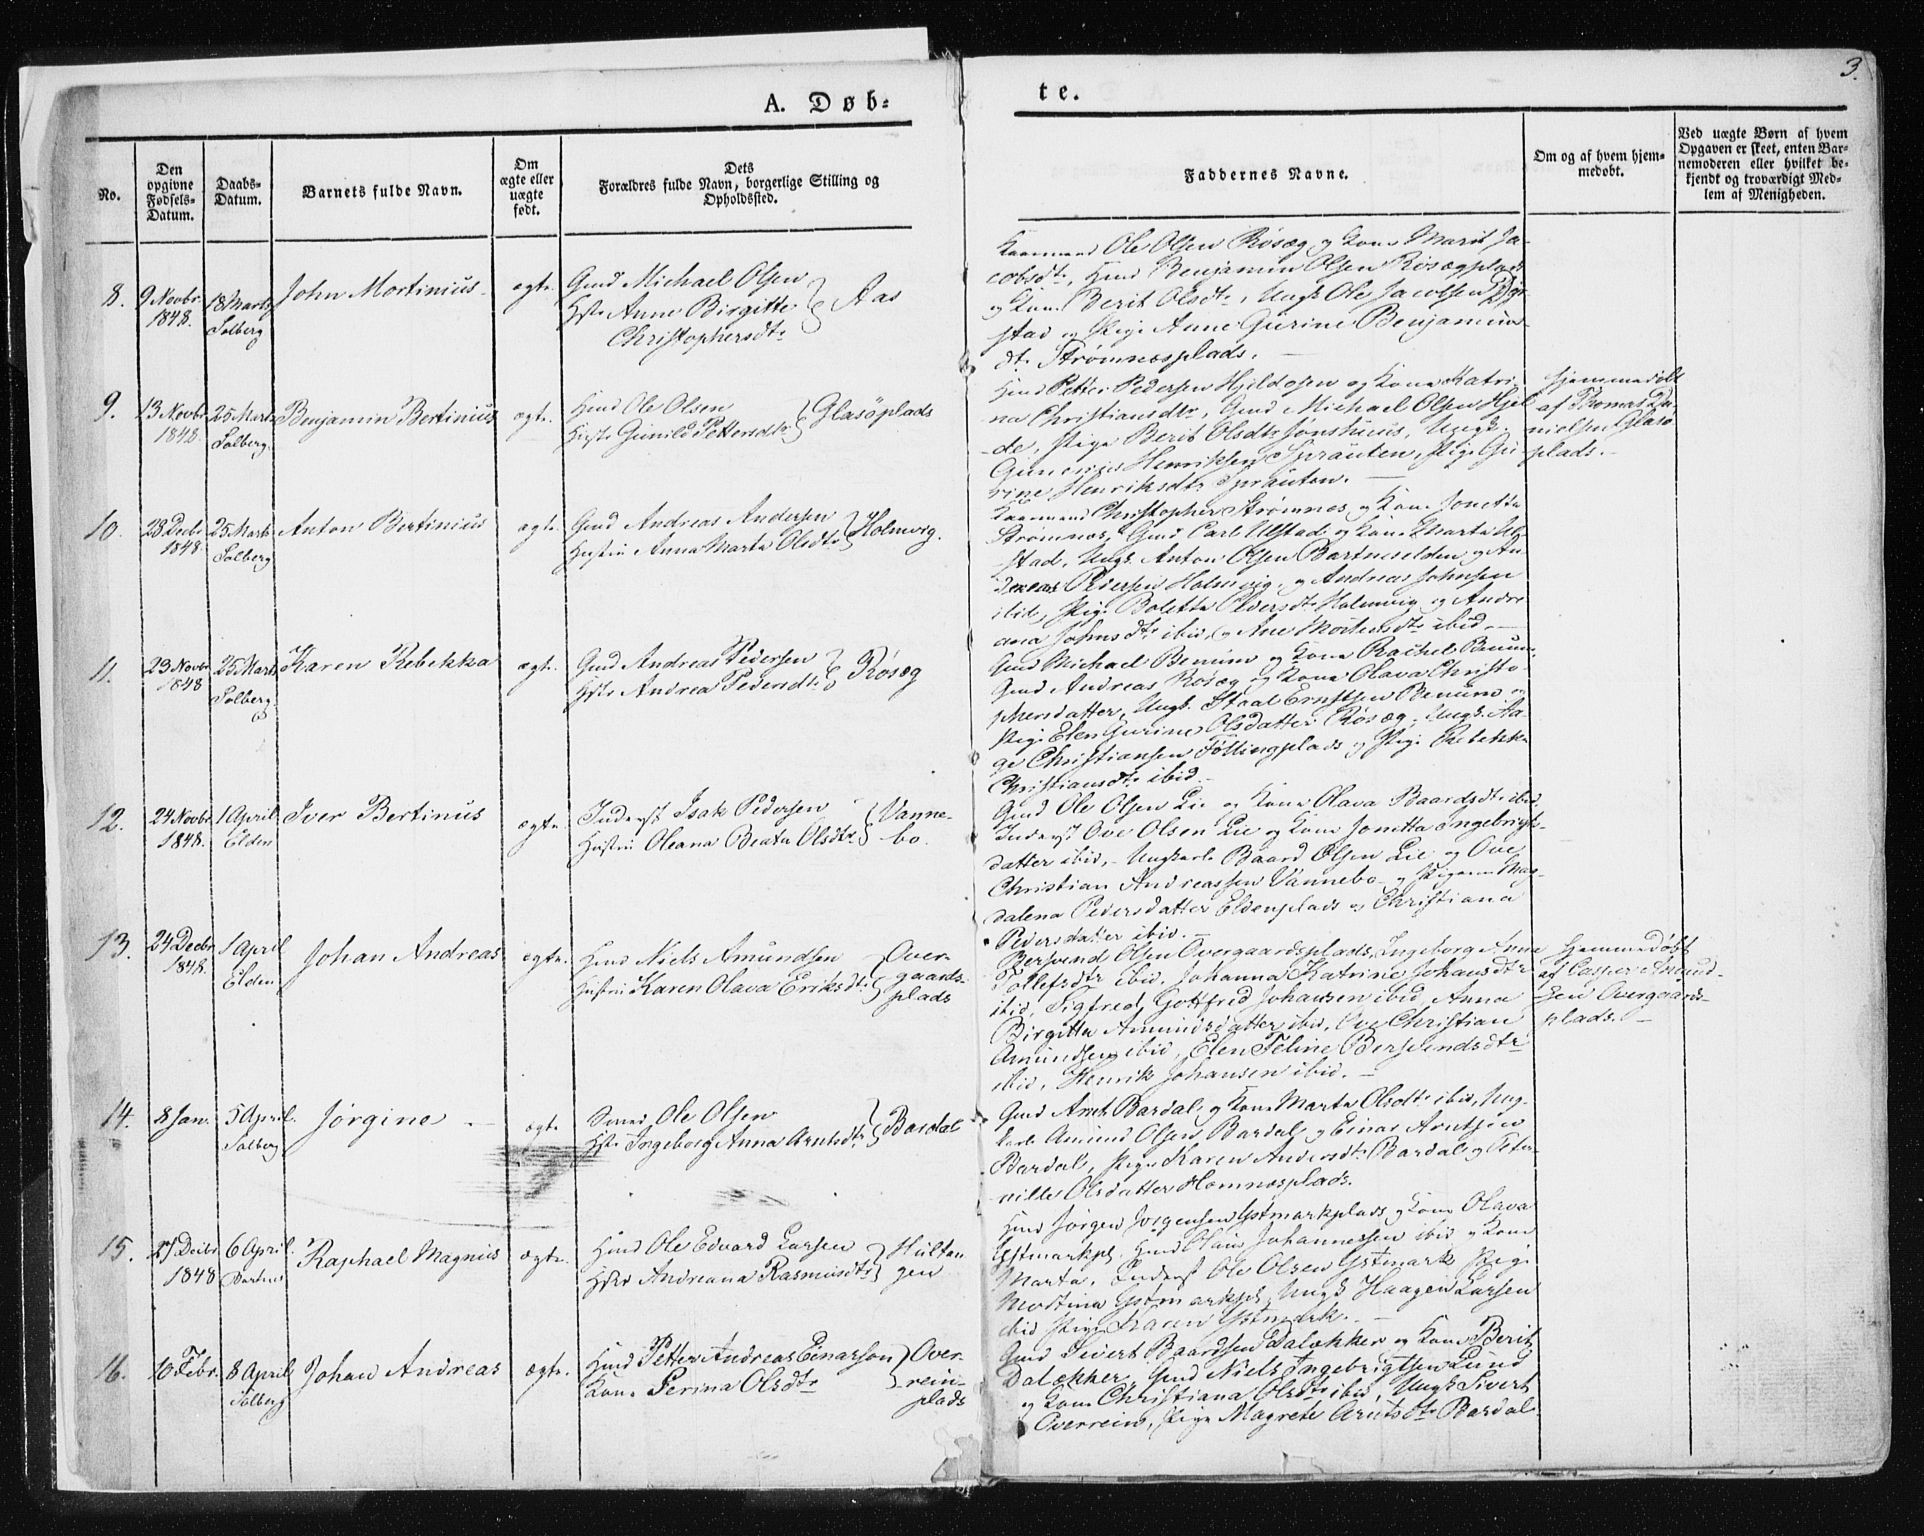 3.
A. Døb-
te.
No.
Den opgivne Fødsels-Datum.
Daabs-Datum.
Barnets fulde Navn.
Om ægte eller uægte født.
Dets Forældres fulde Navn, borgerlige Stilling og Opholdssted.
Faddernes Navne.
Om og af hvem hjem-medøbt.
Ved uægte Børn af hvem Opgaven er skeet, enten Bar-nemoderen eller hvilket be-kjendt og troværdigt Med-lem af Menigheden.
8.
9 Novbr
1848.
18 Marts
Solberg
John Mortinius
ægte
Gmd Michael Olsen
Hst. Anne Birgitte
Christophersdtr
Aas
Kaarmand Ole Olsen Røsæg og Kone Marit Ja-
cobsdtr, Hmd Benjamin Olsen Røsægplads
og Kone Berit Olsdtr, Ungk Ole Jacobsen
stad og Pige Anne Gurine Benjamins-
dtr Strømnesplads.
9.
13 Novbr
1848.
25 Marts
Solberg.
Benjamin Bertinius
ægte
Hmd Ole Olsen
Hust. Gunild Pettersdtr
Glasøplads
Hmd Petter Pedersen Hjeldosen og Kone Katri-
na Christiansdtr, Gmd Michael Olsen Hjel-
de, Pige Berit Olsdtr Jønshuus, Ungk.
Henriksen Sprauten, Pige Gu-
rine Henriksdtr Sprauten.
Hjemmedøbt
af Thomas Da-
nielsen Glasø-
plads.
10.
28 Decbr
1848.
25 Marts
Solberg
Anton Bertinius
ægte
Gmd Andreas Andersen
Hustru Anna Marta Olsdtr
Holmvig.
Kaarmand Christopher Strømnes og Kone Jonetta
Strømnes, Gmd Carl Ulstad og Kone Marta Ul-
stad, Ungk. Anton Olsen Bartneselden og An-
dreas Pedersen Holmvig, og Andreas Johnsen
ibid, Pige Boletta Pedersdtr Holmvig og Andre-
ana Johnsdtr ibid, og Ane Mortensdtr ibid.
11.
23 Novbr
1848
25 Marts
Solberg
Karen Rebekka
ægte
Gmd Andreas Pedersen
Hst. Andrea Pedersdtr
Røsæg
Gmd Michael Benum og Kone Rachel Benum,
Gmd Andreas Røsæg og Kone Olava Christo-
phersdatter, Ungk. Staal Ernstsen Benum og
Pige Elen Gurine Olsdatter Røsæg, Ungk. Aa-
ge Christiansen Føllingplads og Pige Rebekka
Christiansdtr ibid.
12.
24 Novbr
1848.
1 April
Elden
Iver Bertinus
ægte
Inderst Isak Pedersen
Hustru Oleana Beata Olsdtr
Vanne-
bo.
Gmd Ole Olsen Lie og Kone Olava Baardsdtr ibid
Inderst Ove Olsen Lie og Kone Jonetta Ingebrigts-
datter ibid, Ungkarl Baard Olsen Lie og Ove
Christian Andreassen Vannebo og Pigerne Mag-
dalena Pedersdatter Eldenplads og Christiana
Pedersdatter ibid.
13.
24 Decbr
1848.
1 April
Elden
Johan Andreas
ægte
Hmd Niels Amundsen
Hustru Karen Olava Eriksdtr
Over-
gaards-
plads
Bersvend Olsen Overgaardsplads, Ingeborg Anna
Tollefsdtr ibid, Johanna Katrine Johansdtr
ibid, Sigfred Gottfred Johansen ibid, Anna
Birgitta Amundsdatter ibid, Ove Christian
Amundsen ibid, Elen Feline Bersvendsdtr
ibid, Henrik Johansen ibid.
Hjemmedøbt
af Casper Amund-
sen Overgaards-
plads.
14.
8 Jan.
5 April.
Solberg
Jørgine
ægte
Ole Olsen
Hst. Ingeborg Anna Arntsdtr
Bardal
Gmd Arnt Bardal og Kone Marta Olsdtr ibid, Ung-
karle Amund Olsen Bardal og Einar Arntsen
Bardal, Pige Karen Andersdtr Bardal og Peter-
nille Olsdatter Hamnesplads.
15.
27 Decbr
1848
6 April
Bartnes
Raphael Magnus
ægte
Hmd Ole Edvard Larsen
Hst. Andreana Rasmusdtr
Hultan
gen
Hmd Jørgen Jørgensen Ystmarkplads og Kone Olava
Ystmarkpl. Hmd Johannessen ibid og Kone
Marta, Inderst Ole Olsen Ystmark, Pige
Mortina Ystmarkpl, Ungk Haagen Larsen
ibid Pige Karen Ystmark.
16.
10 Febr.
8 April
Solberg
Johan Andreas
ægte
Hmd Petter Andreas Einarson
Kone Perina Olsdtr
Over-
rein-
plads
Gmd Sivert Baardsen Dalækker og Kone Berit
Dalækker, Gmd Niels Ingebrigtsen Lund
og Kone Christiana Olsdtr ibid, Ungk Sivert
Overrein, Pige Magrete Arntsdtr Bardal.